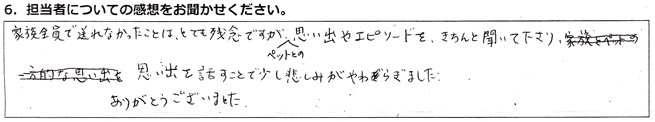 6. 担当者についての感想をお聞かせください。
家族全員で送れなかったことは、とても残念ですが、ペットとの思い出やエピソードを、きちんと聞いて下さり、家族とペットの
思い出を話すことで少し悲しみがやわらぎました。
ありがとうございました。